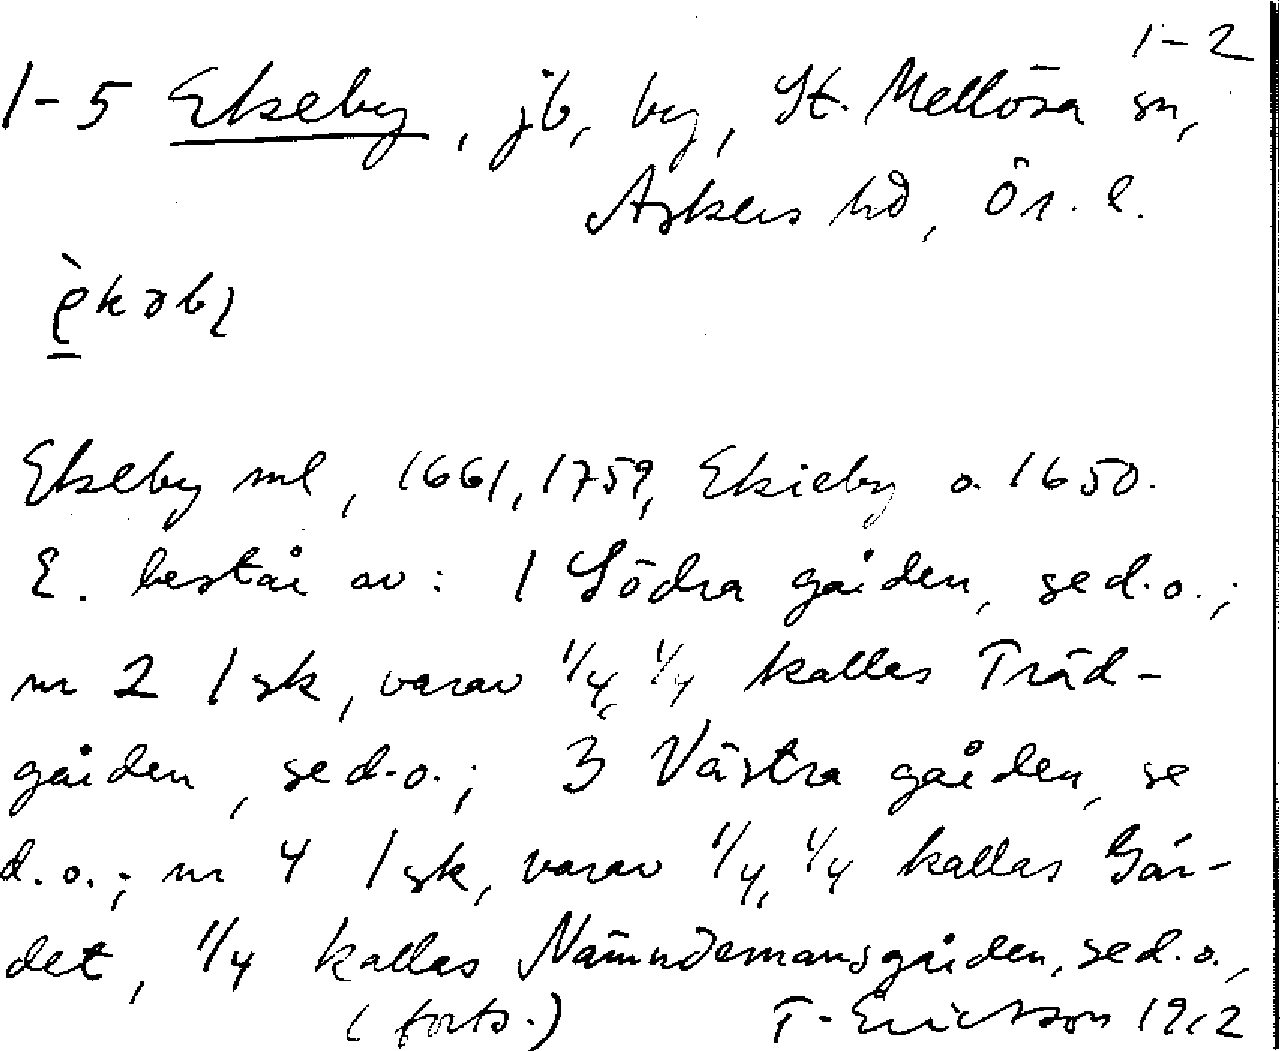 1-2
1-5 Ekeby, jb, by, St. Mellösa sn,
Askers hd, Ör. l.
èkəbɿ
Ekeby ml, 1661, 1759, Ekieby o. 1650.
E. består av: 1 Södra gården, se d.o.;
nr 2 1 sk, varav 1/4, 1/4 kallas Träd-
gården, se d.o.; 3 Västra gården, se
d.o.; nr 4 1 sk, varav 1/4, 1/4 kallas Gär-
det, 1/4 kallas Nämndemansgården, se d.o.,
(forts.) T. Ericsson 1912